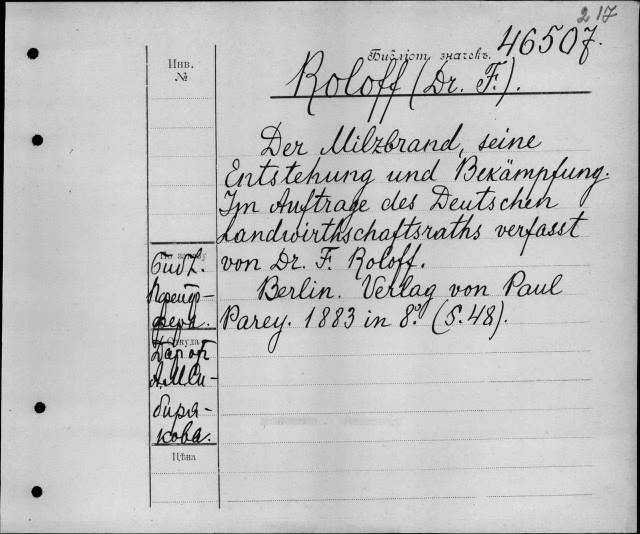 217
46507.
Библіот. значекъ.
Инв.
№
Roloff (Dr. F.).
Der Milzbrand, seine
Entstehung und Bekämpfung.
Im Auftrage des Deutschen
Landwirthschaftsraths verfasst
von Dr. F. Roloff.
Berlin. Verlag von Paul
Parey. 1883 in 8º. (S. 48).
Библ.
Откуда
Даръ
А.М. Си-
биря-
кова.
Цѣна